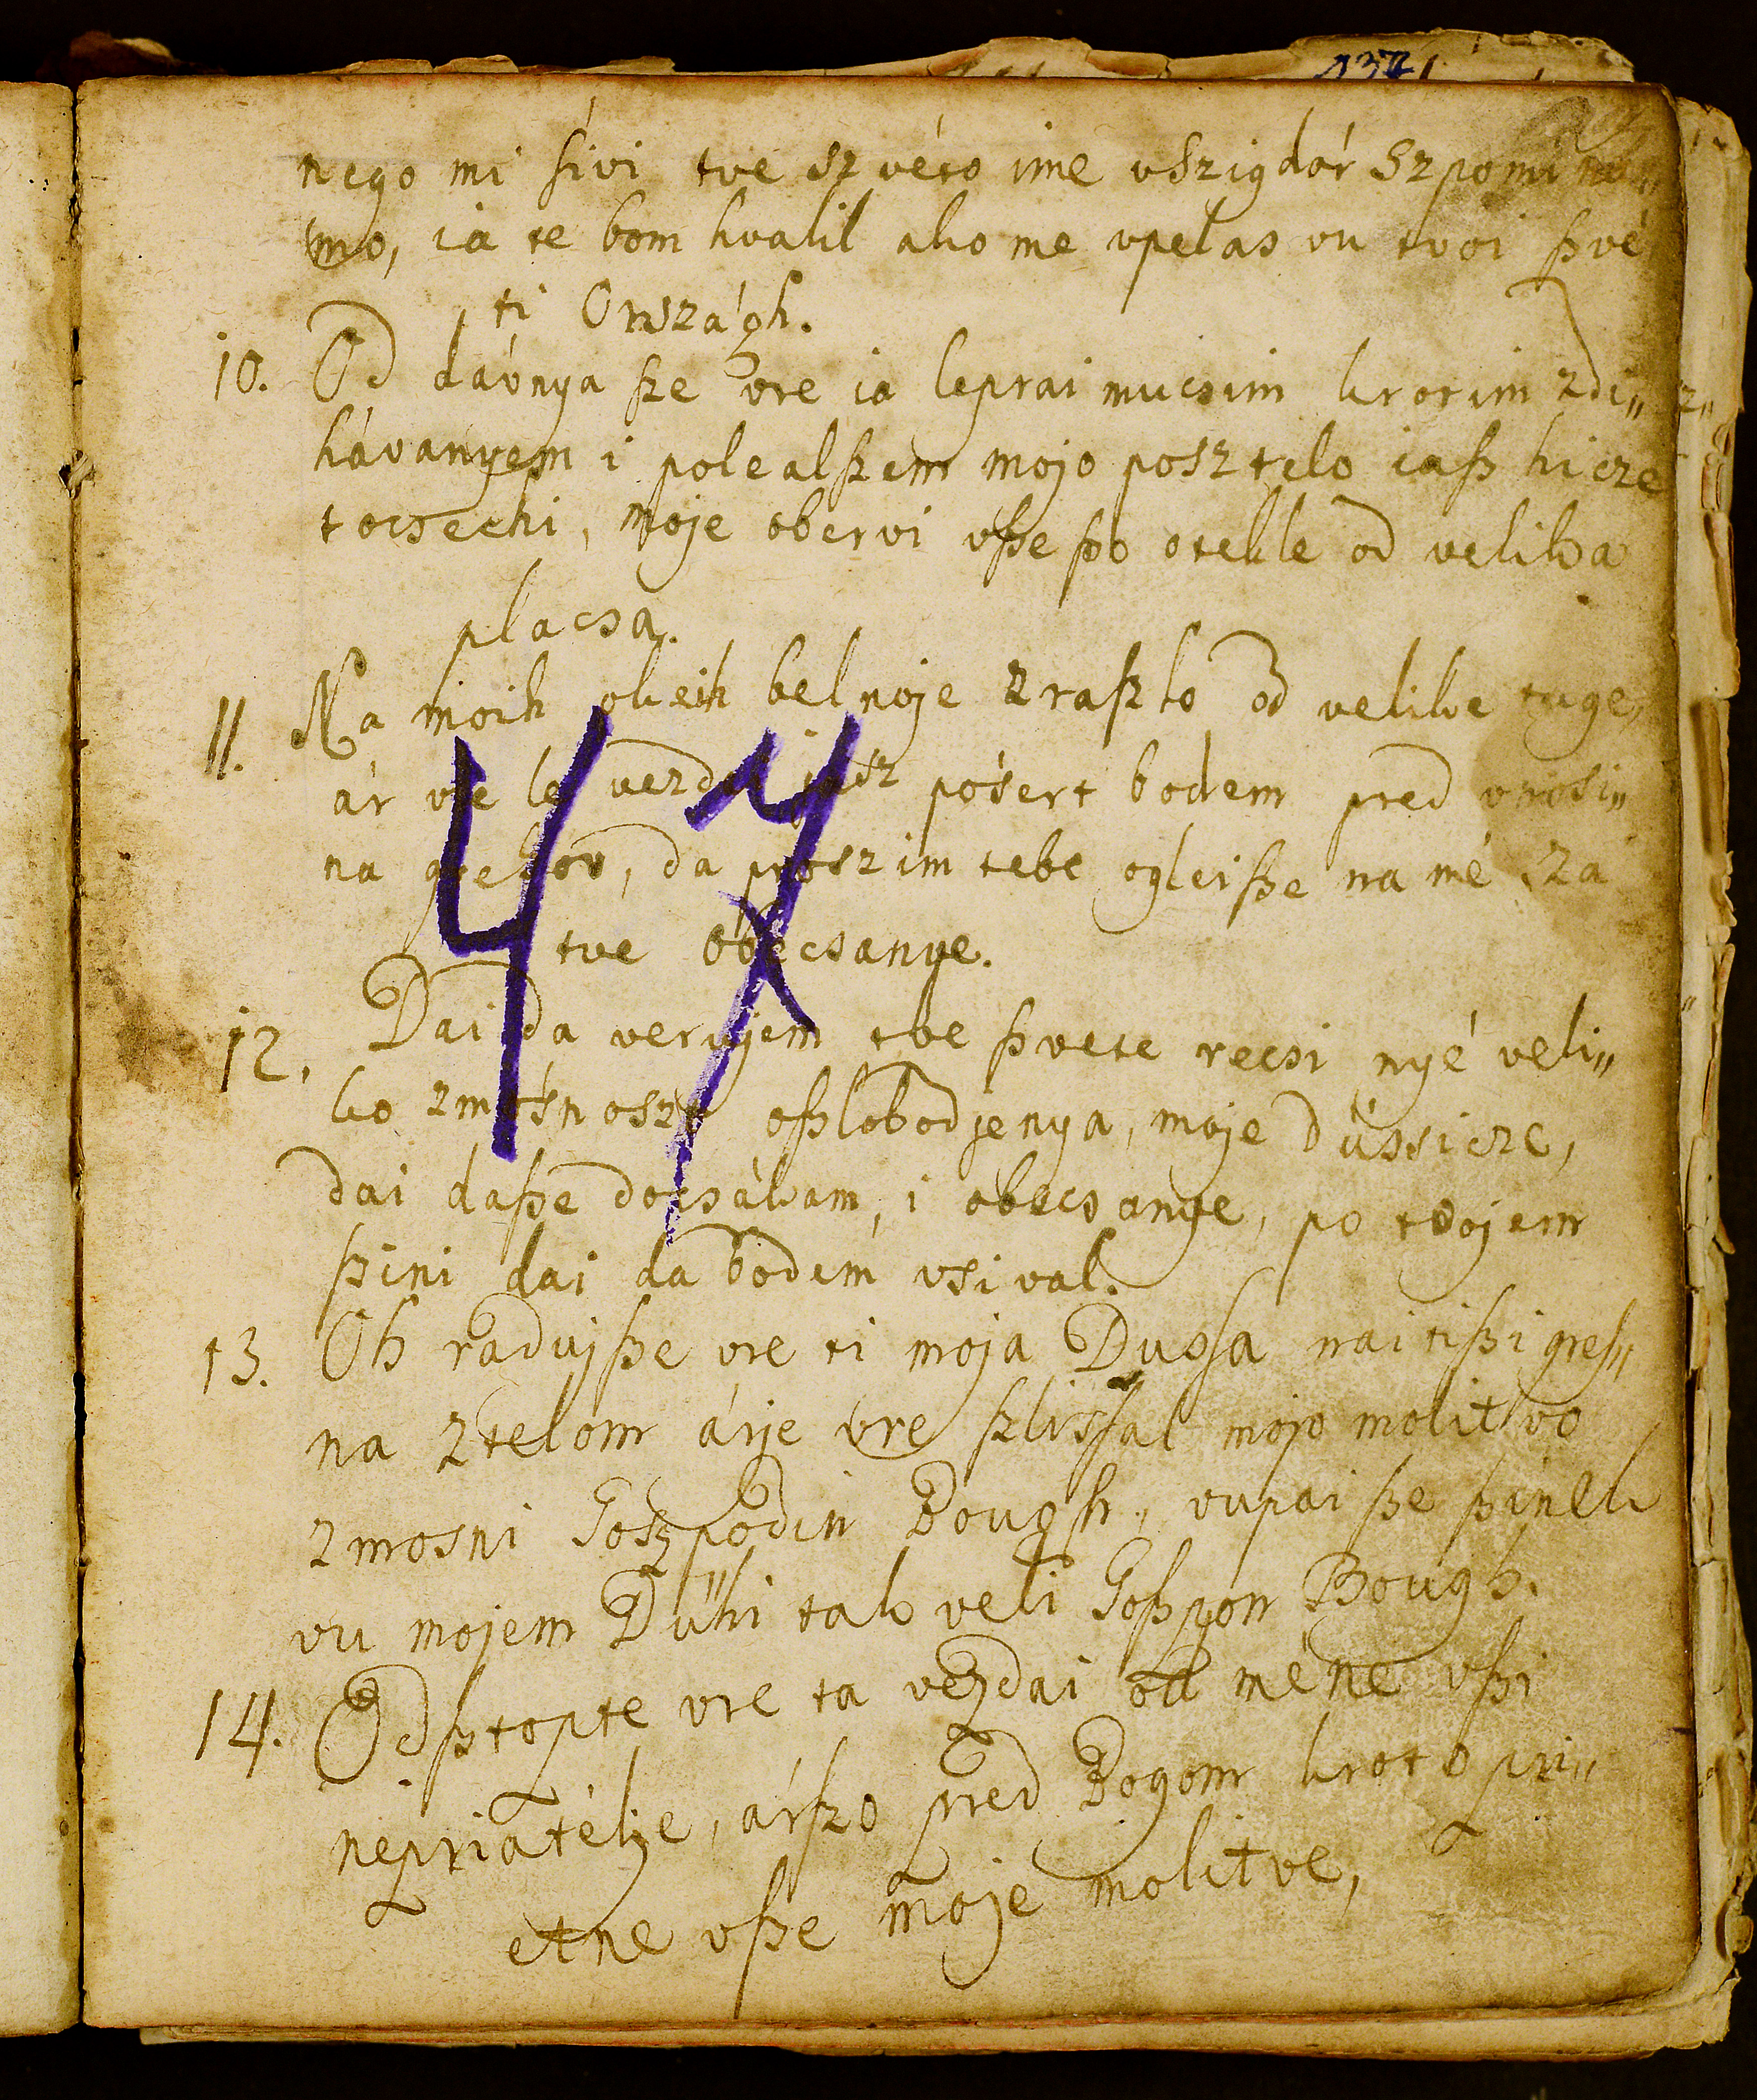 nego mi sivi tve szvéto ime vszigdár szpomina„
mo, ia te bom hvalil ako me vpelas vu tvoi ſzvé
ti Országh.
10. Od dávnya ſze vre ia leprai mucsim krotim zdi„
hávanyem i polealſzem mojo posztelo iaſz hicze
tocsechi, moje obervi vſze ſzo otekle od velika
placsa.
11. Na moih okeih belnoje zraſzlo od velike tuge,
ár vre le vezdai iasz pósert bodem pred vnosi„
na grehov, da proszim tebe ogleiſze na mé, za
tve obecsanye.
12. Dai da verujem tve ſzvete recsi nyé veli„
ko zmósnoszt oſzlobodjenya, moje dússicze,
dai daſze docsákam, i obecsanye, po tvojem
ſzini dai da bodem vsival.
13. Oh radujſze vre ti moja Dusſa nai tiſzi greſ„
na ztelom árje vre ſzlisſal mojo molitvo
zmosni Goſzpodin Bough, vupai ſze ſzinek
vu mojem Dühi tak veli Goſzpon Bough.
14. Odſztopte vre ta vezdai od méne vſzi
nepriatélje, árſzo pred Bogom kroto pri„
etne vſze moje molitve,
47